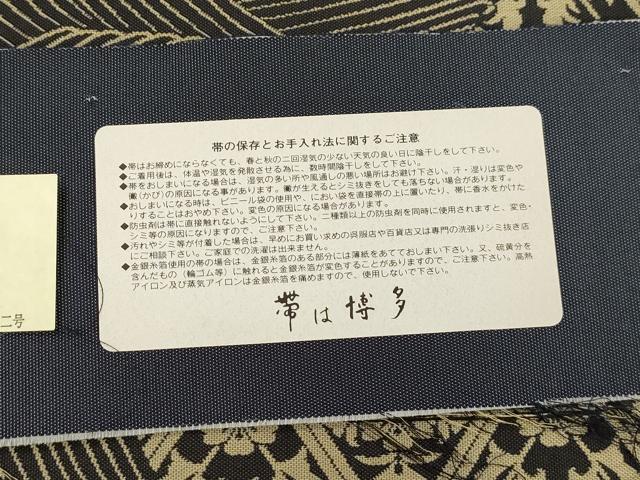 帯の保存とお手入れ法に関するご注意
◆帯はお締めにならなくても、春と秋の二回湿気の少ない天気の良い日に陰干しをして下さい。
◆ご着用後は、体温や湿気を発散させる為に、数時間陰干しをして下さい。
◆帯をおしまいになる場合は、湿気の多い所や風通しの悪い場所はお避け下さい。汗・湿りは変色や
黴(かび)の原因になる事があります。黴が生えるとシミ抜きをしても落ちない場合があります。
◆おしまいになる時は、ビニール袋の使用や、におい袋を直接帯の上に置いたり、帯に香水をかけた
りすることはおやめ下さい。変色の原因になる場合があります。
◆防虫剤は帯に直接触れないようにして下さい。二種類以上の防虫剤を同時に使用されますと、変色・
シミ等の原因になりますので、ご注意下さい。
◆汚れやシミ等が付着した場合は、早めにお買い求めの呉服店や百貨店又は専門の洗張りシミ抜き店
にご相談下さい。ご家庭での洗濯は出来ません。
◆金銀糸箔使用の帯の場合は、金銀糸箔のある部分には薄紙をあてておしまい下さい。又、硫黄分を
含んだもの（輪ゴム等）に触れると金銀糸箔が変色することがありますので、ご注意下さい。高熱
アイロン及び蒸気アイロンは金銀糸箔を痛めますので、使用しないで下さい。
帯は博多
二号